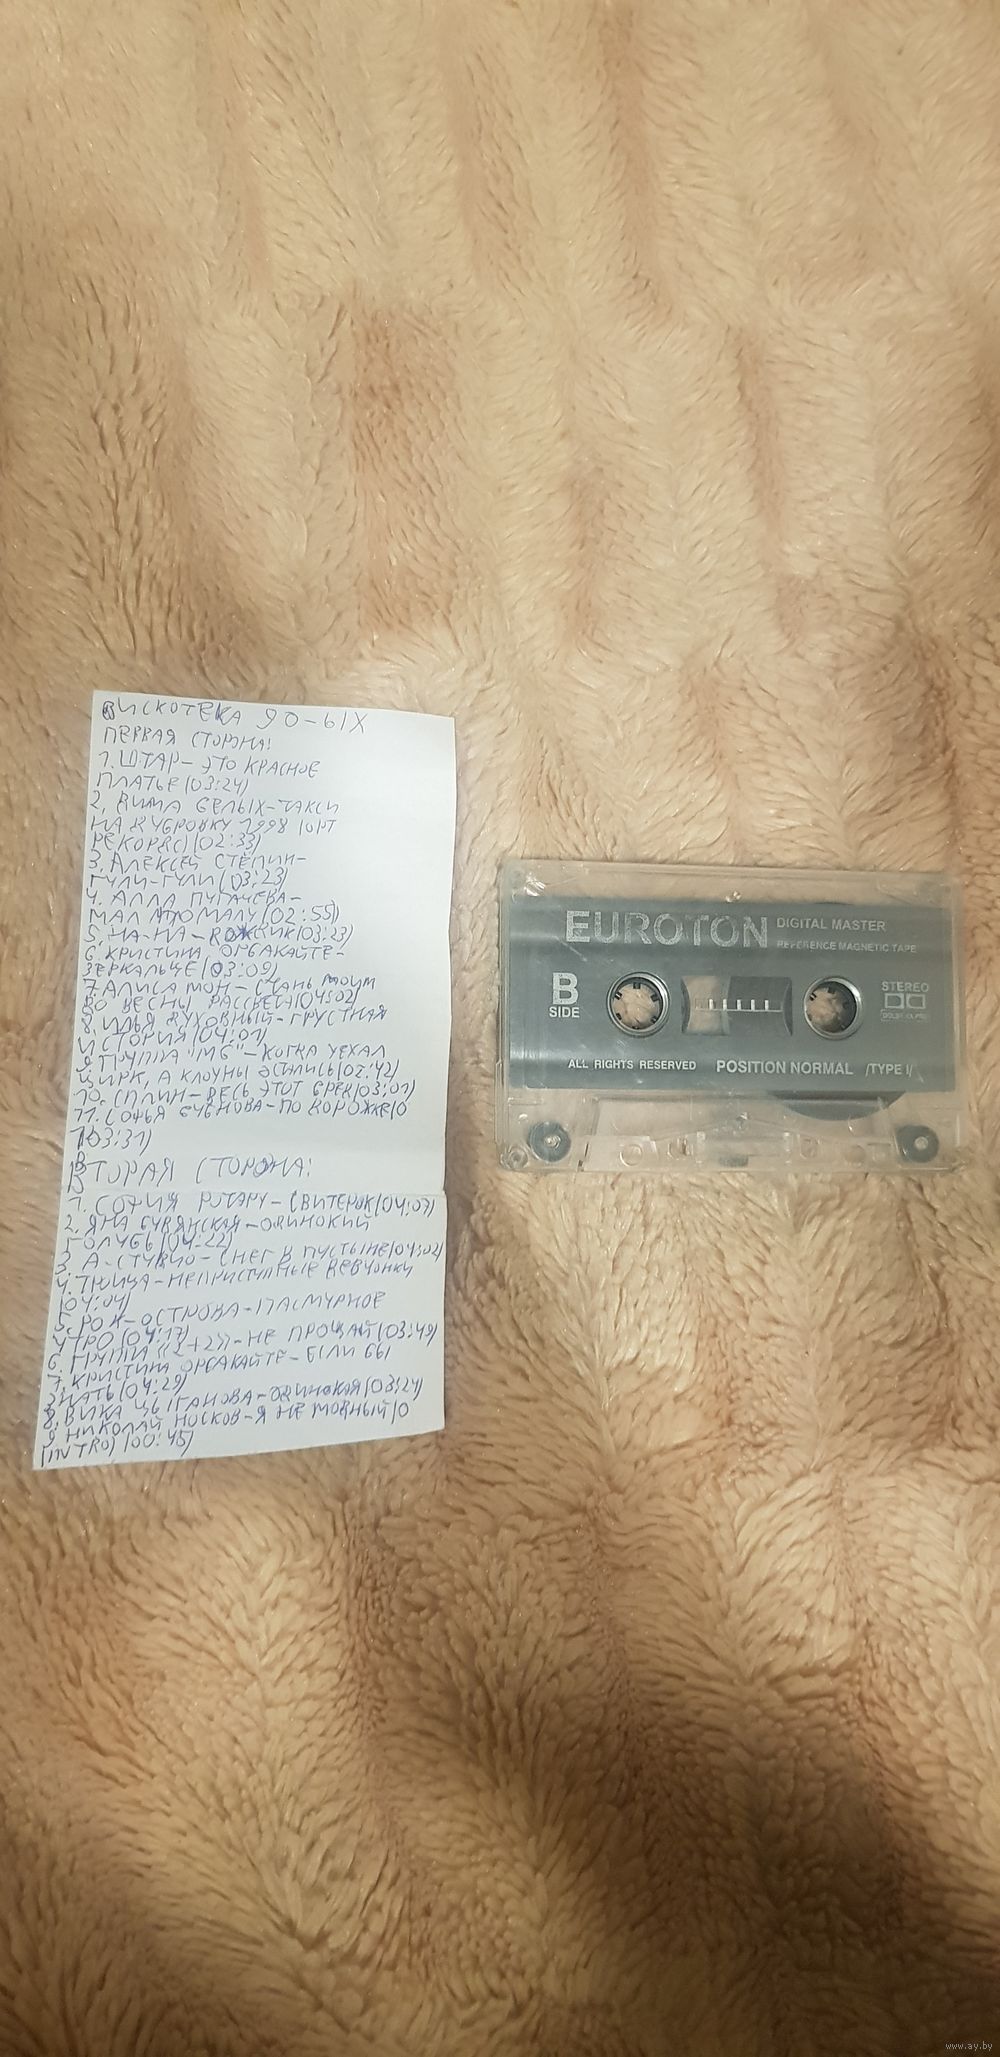 ДИСКОТЕКА 90-ЫХ
ПЕРВАЯ СТОРОНА:
1. ШТАР- ЭТО КРАСНОЕ
ПЛАТЬЕ (03:24)
2. ДИМА БЕЛЫХ-ТАКСИ
НА ДУБРОВКУ 1998 (ОРТ
РЕКОРДС) (02:33)
3. АЛЕКСЕЙ СТЁПИН-
ГУЛИ-ГУЛИ (03:23)
4. АЛЛА ПУГАЧЁВА-
МАЛ ПОМАЛУ (02:55)
5. НА-НА- ДОЖДИК (03:23)
6. КРИСТИНА ОРБАКАЙТЕ-
ЗЕРКАЛЬЦЕ (03:09)
7. АЛИСА МОН- СТАНЬ МОИМ
ВО ВЕСНЫ РАССВЕТА (04:02)
8. ИЛЬЯ ДУХОВНЫЙ- ГРУСТНАЯ
ИСТОРИЯ (04:01)
9. ГРУППА "МГ"- КОГДА УЕХАЛ
ЦИРК, А КЛОУНЫ ОСТАЛИСЬ (02:42)
10. СПЛИН- ВЕСЬ ЭТОТ БРЕД (03:01)
11. СОФЬЯ БУБНОВА- ПО ДОРОЖКЕ
(03:31)
ВТОРАЯ СТОРОНА:
1. СОФИЯ РОТАРУ- СВИТЕРОК (04:07)
2. ЯНА ОДИНОКИЙ
ГОЛУБЬ (04:22)
3. А-СТУДИО- СНЕГ В ПУСТЫНЕ (04:02)
4. ТЮИЦА-НЕПРИСТУПНЫЕ ДЕВЧОНКИ
(04:04)
5. РОК-ОСТРОВА- ПАСМУРНОЕ
УТРО (04:17)
6. ГРУППА «2+2»- НЕ ПРОЩАЙ (03:49)
7. КРИСТИНА ОРБАКАЙТЕ- ЕСЛИ БЫ
ЗНАТЬ (04:29)
8. ВИКА ЦЫГАНОВА- ОДИНОКАЯ (03:24)
9. НИКОЛАЙ НОСКОВ- Я НЕ МОДНЫЙ
(INTRO) (00:45)
EUROTON
DIGITAL MASTER
REFERENCE MAGNETIC TAPE
B
SIDE
STEREO
ALL RIGHTS RESERVED POSITION NORMAL /TYPE I/
www.ay.by